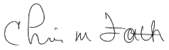 Chris M Fath